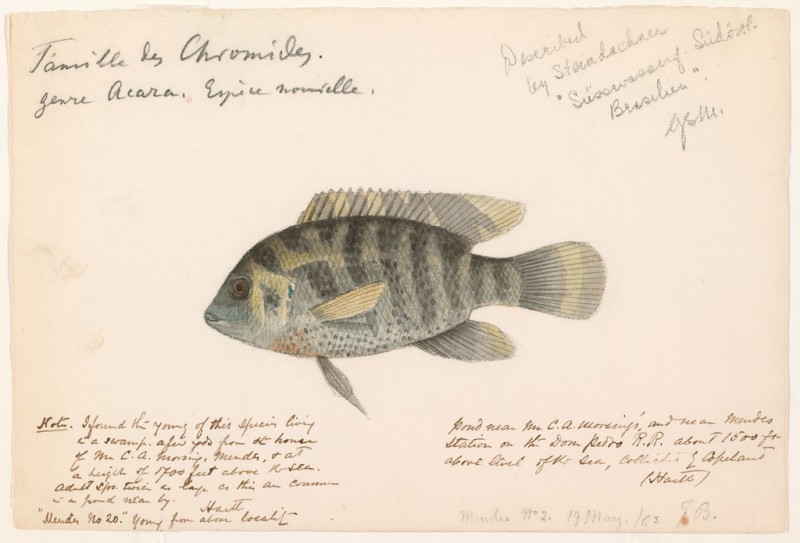 Famille des Chromides.
genre Acara. Espèce nouvelle.
Described
by Steindachner
"Süsswasserf. Südöstl.
Brasilien".
Note. I found the young of this species living
in a swamp. a few yds from the house
of Mr C. A. Morsing, Mendes, & at
a height of 1700 feet above the sea.
adult spns. twice as large as this are common
in a pond near by.
Hartt
"Mendes No 20." Young from above localit
pond near Mr C. A. Morsing's, and near Mendes
Station on the Dom Pedro R.R. about 1500 ft
above level of the sea, Collected by Copeland
(Hartt)
Mendes No 2. 19 May. /65 J B.